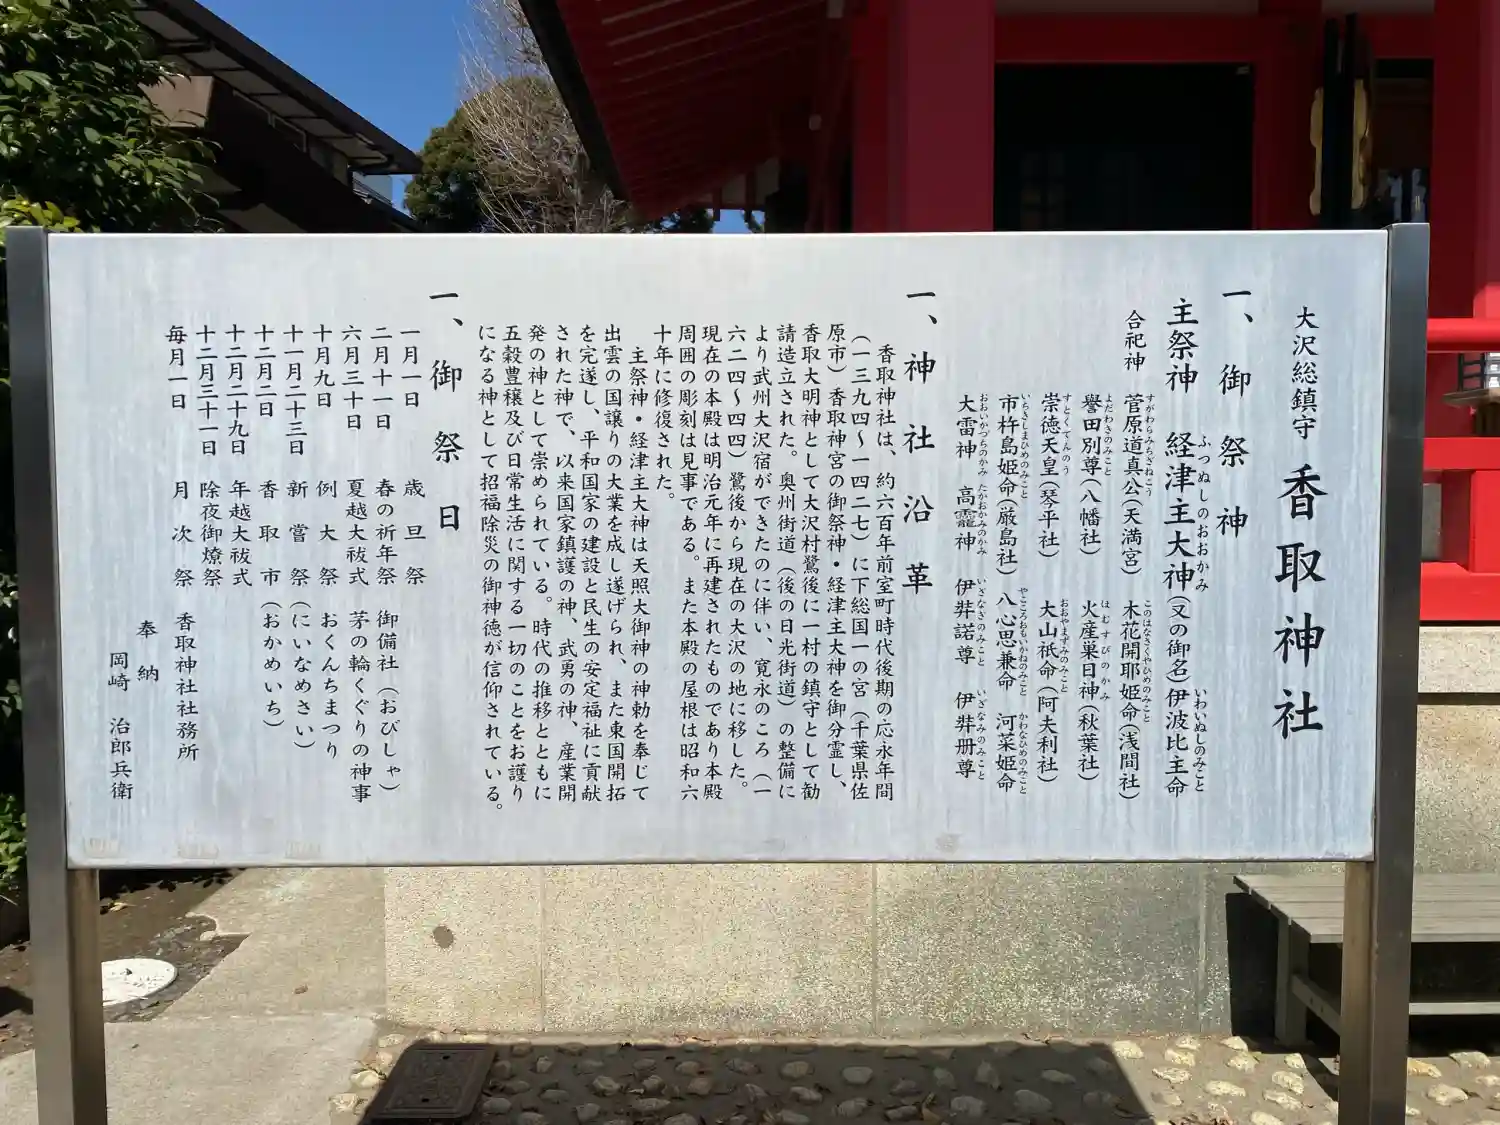 大沢総鎮守 香取神社
一、御祭神
主祭神 経津主大神(又の御名)伊波比主命
ふつぬしのおおかみ いわいぬしのみこと
合祀神 菅原道真公(天満宮) 木花開耶姫命(浅間社)
すがわらみちざねこう このはなさくやひめのみこと
誉田別尊(八幡社) 火産巣日神(秋葉社)
よだわきのみこと ほむすびのかみ
崇徳天皇(琴平社) 大山祇命(阿夫利社)
すとくてんのう おおやまずみのみこと
市杵島姫命(厳島社) 八心思兼命 河菜姫命
いちきしまひめのみこと やこころおもいかねのみこと かわなひめのみこと
大雷神 高龗神 伊弉諾尊 伊弉册尊
おおいかづちのかみ たかおかみのかみ いざなぎのみこと いざなみのみこと
一、神社沿革
香取神社は、約六百年前室町時代後期の応永年間
(一三九四〜一四二七)に下総国一の宮(千葉県佐
原市)香取神宮の御祭神・経津主大神を御分霊し、
香取大明神として大沢村鷺後に一村の鎮守として勧
請造立された。奥州街道(後の日光街道)の整備に
より武州大沢宿ができたのに伴い、寛永のころ(一
六二四〜四四)鷺後から現在の大沢の地に移した。
現在の本殿は明治元年に再建されたものであり本殿
周囲の彫刻は見事である。また本殿の屋根は昭和六
十年に修復された。
主祭神・経津主大神は天照大御神の神勅を奉じて
出雲の国譲りの大業を成し遂げられ、また東国開拓
を完遂し、平和国家の建設と民生の安定福祉に貢献
された神で、以来国家鎮護の神、武勇の神、産業開
発の神として崇められている。時代の推移とともに
五穀豊穣及び日常生活に関する一切のことをお護り
になる神として招福除災の御神徳が信仰されている。
一、御祭日
一月一日 歳旦祭
二月十一日 春の祈年祭 御備社(おびしゃ)
六月三十日 夏越大祓式 茅の輪くぐりの神事
十月九日 例大祭 おくんちまつり
十一月二十三日 新嘗祭(にいなめさい)
十二月二日 香取市(おかめいち)
十二月二十九日 年越大祓式
十二月三十一日 除夜御燎祭
毎月一日 月次祭 香取神社社務所
奉納
岡崎 治郎兵衛